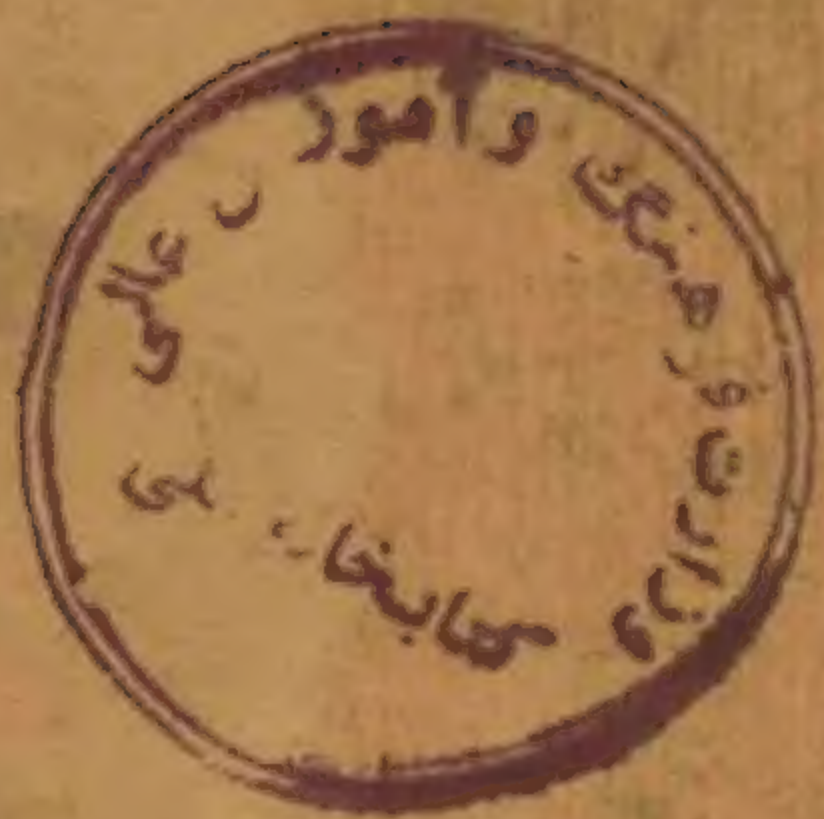 وزارت فرهنگ و امور عالی
کتابخانه